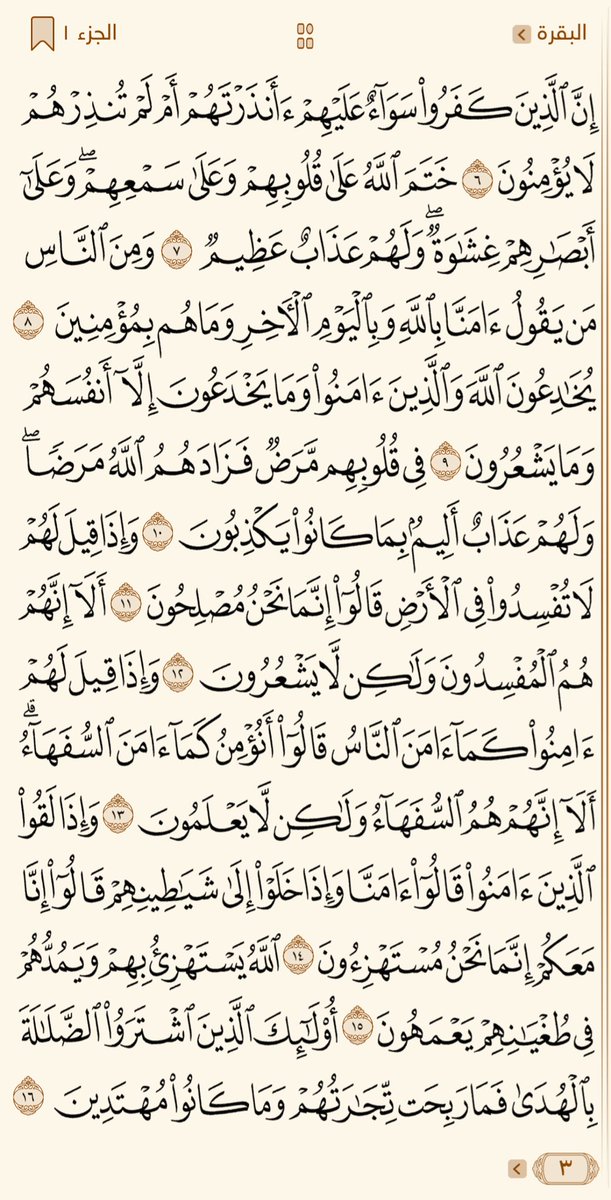 البقرة
الجزء ١
إِنَّ ٱلَّذِينَ كَفَرُوا۟ سَوَآءٌ عَلَيْهِمْ ءَأَنذَرْتَهُمْ أَمْ لَمْ تُنذِرْهُمْ
لَا يُؤْمِنُونَ ٦ خَتَمَ ٱللَّهُ عَلَىٰ قُلُوبِهِمْ وَعَلَىٰ سَمْعِهِمْ ۖ وَعَلَىٰٓ
أَبْصَـٰرِهِمْ غِشَـٰوَةٌ ۖ وَلَهُمْ عَذَابٌ عَظِيمٌ ٧ وَمِنَ ٱلنَّاسِ
مَن يَقُولُ ءَامَنَّا بِٱللَّهِ وَبِٱلْيَوْمِ ٱلْـَٔاخِرِ وَمَا هُم بِمُؤْمِنِينَ ٨
يُخَـٰدِعُونَ ٱللَّهَ وَٱلَّذِينَ ءَامَنُوا۟ وَمَا يَخْدَعُونَ إِلَّآ أَنفُسَهُمْ
وَمَا يَشْعُرُونَ ٩ فِى قُلُوبِهِم مَّرَضٌ فَزَادَهُمُ ٱللَّهُ مَرَضًا ۖ
وَلَهُمْ عَذَابٌ أَلِيمٌۢ بِمَا كَانُوا۟ يَكْذِبُونَ ١٠ وَإِذَا قِيلَ لَهُمْ
لَا تُفْسِدُوا۟ فِى ٱلْأَرْضِ قَالُوٓا۟ إِنَّمَا نَحْنُ مُصْلِحُونَ ١١ أَلَآ إِنَّهُمْ
هُمُ ٱلْمُفْسِدُونَ وَلَـٰكِن لَّا يَشْعُرُونَ ١٢ وَإِذَا قِيلَ لَهُمْ
ءَامِنُوا۟ كَمَآ ءَامَنَ ٱلنَّاسُ قَالُوٓا۟ أَنُؤْمِنُ كَمَآ ءَامَنَ ٱلسُّفَهَآءُ ۗ
أَلَآ إِنَّهُمْ هُمُ ٱلسُّفَهَآءُ وَلَـٰكِن لَّا يَعْلَمُونَ ١٣ وَإِذَا لَقُوا۟
ٱلَّذِينَ ءَامَنُوا۟ قَالُوٓا۟ ءَامَنَّا وَإِذَا خَلَوْا۟ إِلَىٰ شَيَـٰطِينِهِمْ قَالُوٓا۟ إِنَّا
مَعَكُمْ إِنَّمَا نَحْنُ مُسْتَهْزِءُونَ ١٤ ٱللَّهُ يَسْتَهْزِئُ بِهِمْ وَيَمُدُّهُمْ
فِى طُغْيَـٰنِهِمْ يَعْمَهُونَ ١٥ أُو۟لَـٰٓئِكَ ٱلَّذِينَ ٱشْتَرَوُا۟ ٱلضَّلَـٰلَةَ
بِٱلْهُدَىٰ فَمَا رَبِحَت تِّجَـٰرَتُهُمْ وَمَا كَانُوا۟ مُهْتَدِينَ ١٦
٣